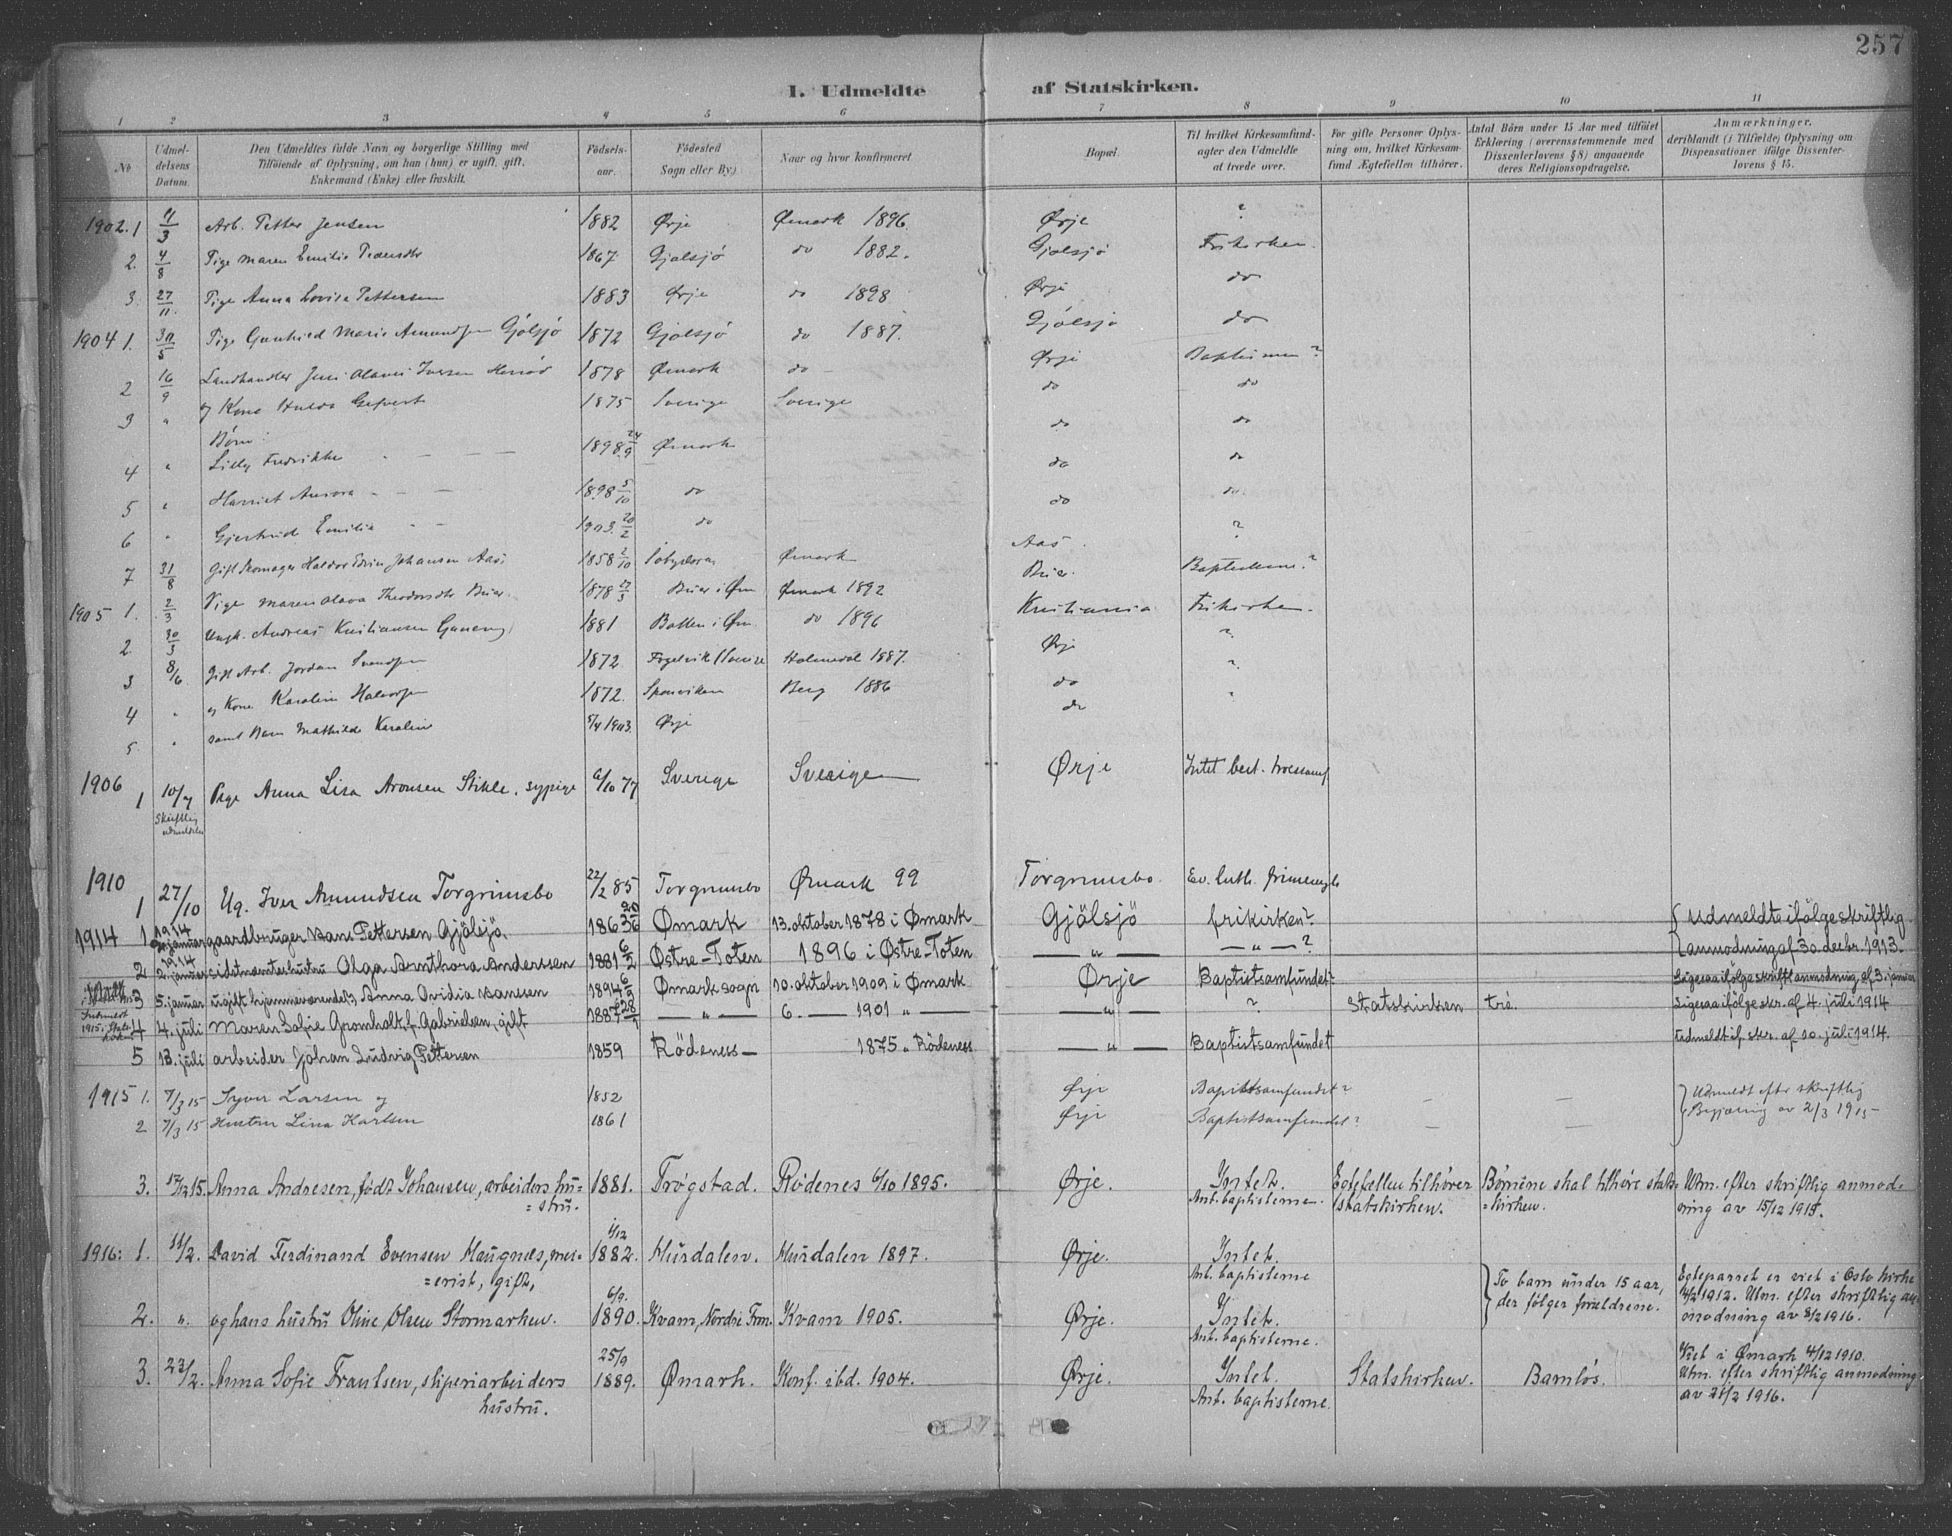 257
1. Udmeldte af Statskirken.
1 2 3 4 5 6 7 8 9 10 11
No
Udmeldelsens Datum.
Den Udmeldtes fulde Navn og borgerlige Stilling med
Tilføiende af Oplysning, om han (hun) er ugift, gift,
Enkemand (Enke) eller fraskilt.
Fødselsaar.
Fødested
Sogn eller By)
Naar og hvor konfirmeret
Bopæl.
Til hvilket Kirkesamfund
agter den Udmeldte
at træde over.
For gifte Personer Oplys-
ning om, hvilket Kirkesam-
fund Ægtefællen tilhører.
Antal Børn under 15 Aar med tilføiet
Erklæring (overensstemmende med
Dissenterlovens § 8) angaaende
deres Religionsopdragelse.
Anmærkninger,
deriblandt (i Tilfælde) Oplysning om
Dispensationer ifølge Dissenter-
lovens § 15.
1902. 1 11/3 Arb. Petter Jensen 1882 Ørje Ømark 1896 Ørje ?
2. 4/8 Pige Maren Emilie Pedersdtr 1867 Gjølsjø do 1882. Gjølsjø Frikirken.
3. 27/11 Pige Anna Lovisa Pettersen 1883 Ørje do 1898 Ørje do
1904 1. 30/5 Pige Gunhild Marie Amundsen Gjølsjø 1872 Gjølsjø do 1887. Gjølsjø do
2 16/9 Landhandler Jens Olaves Iversen 1878 Ømark do Ørje Baptismen?
3 " og Kone Hulda 1875 Sverige Sverige do do
Børn:
4 " Lilly Fredrikke 1898 24/9 Ømark do do
5 " Harriet Aurora 1898 5/10 do do do
6 " Gjertrud Emilie 1903 20/2 do do do
7 31/8 Gift Skomager Haldor Edvin Johansen Aas 1858 2/10 Ømark Aas ?
1905 1. 2/3 Pige Maren Olava Theodorsdtr Buer 1878 27/3 Buer i Øm Ømark 1892 Buer. Baptisterne?
2. 30/3 Ungk. Andreas Kristiansen 1881 Bøllen i Øm do 1896 Kristiania Frikirken.
3 8/6 Gift Arb. Jordan Svendsen 1872 Holmedal 1887. Ørje ?
4 " og Kone Karoline Halvorsen 1872. Sponviken Berg 1886 do ?
5. " samt Barn Mathilde Karoline 5/4 1903 Ørje do "
1906 1 10/7 Pige Anna Lisa Aronsen Stikle, sypige 6/10 77 Sverige Sverige Ørje Intet best. troessamf
Skriftlig
udmeldelse
1910 1 27/10 Ug. Iver Amundsen Torgrimsbo 22/2 85 Torgrimsbo Ømark 99 Torgrimsbo. Ev. luth. frimenigh
1914 1 1914 2 januar gaardbruger Hans Pettersen Gjølsjø 1863 Ømark 13. oktober 1878 i Ømark Gjølsjö frikirken? { Udmeldte ifølge skriftlig
2 1914 2. januar sidstnævntes hustru Olga Arnthora Anderssen 1881 6/2 Østre-Toten 1896 i Østre-Toten — " — — " — ? { anmodning af 30. decbr. 1913.
3 5. januar ugift hjemmeværende Anna Ovidia Hanssen 1894 6/9 Ømark sogn 10. oktober 1909 i Ømark Ørje Baptistsamfundet? Ligesaa ifølge skriftl anmodning af 3. januar
4 4. juli Maren Sofie Gromholt f. Gabrielsen, gift 1887 — " — 6. — 1901 " — — " — ? Statskirken tre. Ligesaa ifølge skr. af 4. juli 1914
5 13. juli arbeider Johan Ludvig Pettersen 1859 Rödeness — 1875 " Rödeness — " — Baptistsamfundet Udmeldt if. skr. af 10. juli 1914.
1915 1. 7/3 15 Syver Larsen og 1852 Ørje Baptistsamfundet? — — } Udmeldt efter skriftlig
2 7/3 15 Hustru Lina Karlsen 1861 Ørje Baptistsamfundet? — — } Begjæring av 2/3 1915
3. 17/12 15. Anna Andresen, født Johansen, arbeiders hu= 1881. Trøgstad. Rødenes 6/10 1895. Ørje. Intet. Egtefællen tilhører Børnene skal tilhøre stats= Utm. efter skriftlig anmod=
=stru. Ant. baptisterne. statskirken. =kirken. ning av 15/12 1915.
1916: 1. 11/2. David Ferdinand Evensen Haugnæs, mei= 1/12 1882. Hurdalen. Hurdalen 1897. Ørje. Intet.
=erist, gift, Ant. baptisterne } To barn under 15 aar, Egteparret er viet i Oslo kirke
der følger forældrene. 1912. Utm. efter skriftlig an=
2. ". og hans hustru Oline Olsen Stormarken. 6/9. 1890. Kvam, Nordre Fron. Kvam 1905. Ørje. Intet. modning av 8/2 1916.
Ant. baptisterne.
3. 23/2. Anna Sofie Frantsen, sliperiarbeiders 25/9 1889. Ømark. Konf. ibd. 1904. Ørje. Intet. Statskirken. Barnløs. Viet i Ømark 4/12 1910.
hustru. Ant. baptisterne. Utm. efter skriftlig anmodning
av 21/2 1916.